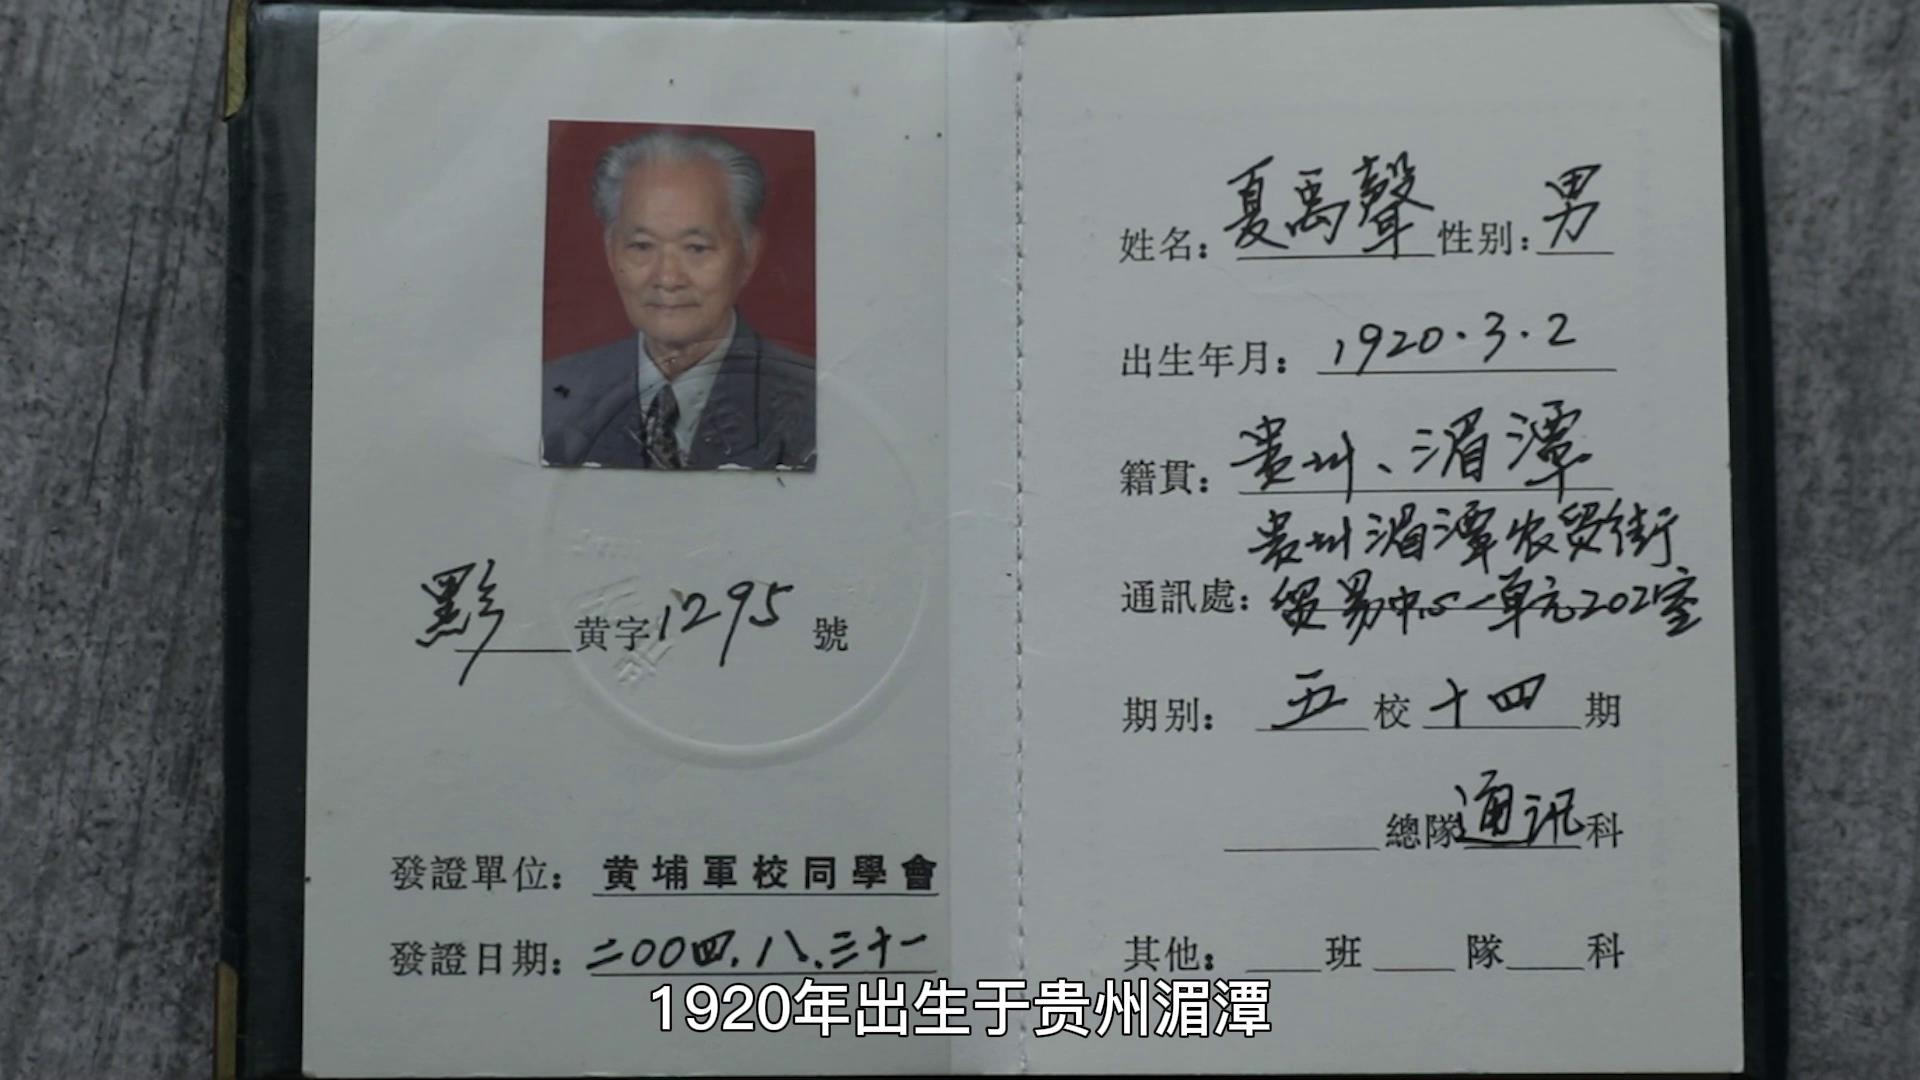 黔黄字1295號
發證單位：黄埔軍校同學會
發證日期：二00四.八.三十一
姓名：夏禹聲 性别：男
出生年月：1920.3.2
籍貫：贵州、湄潭
贵州湄潭农贸街
通訊處：贸易中心一单元202室
期别：五校十四期
總隊通訊科
其他：班隊科
1920年出生于贵州湄潭